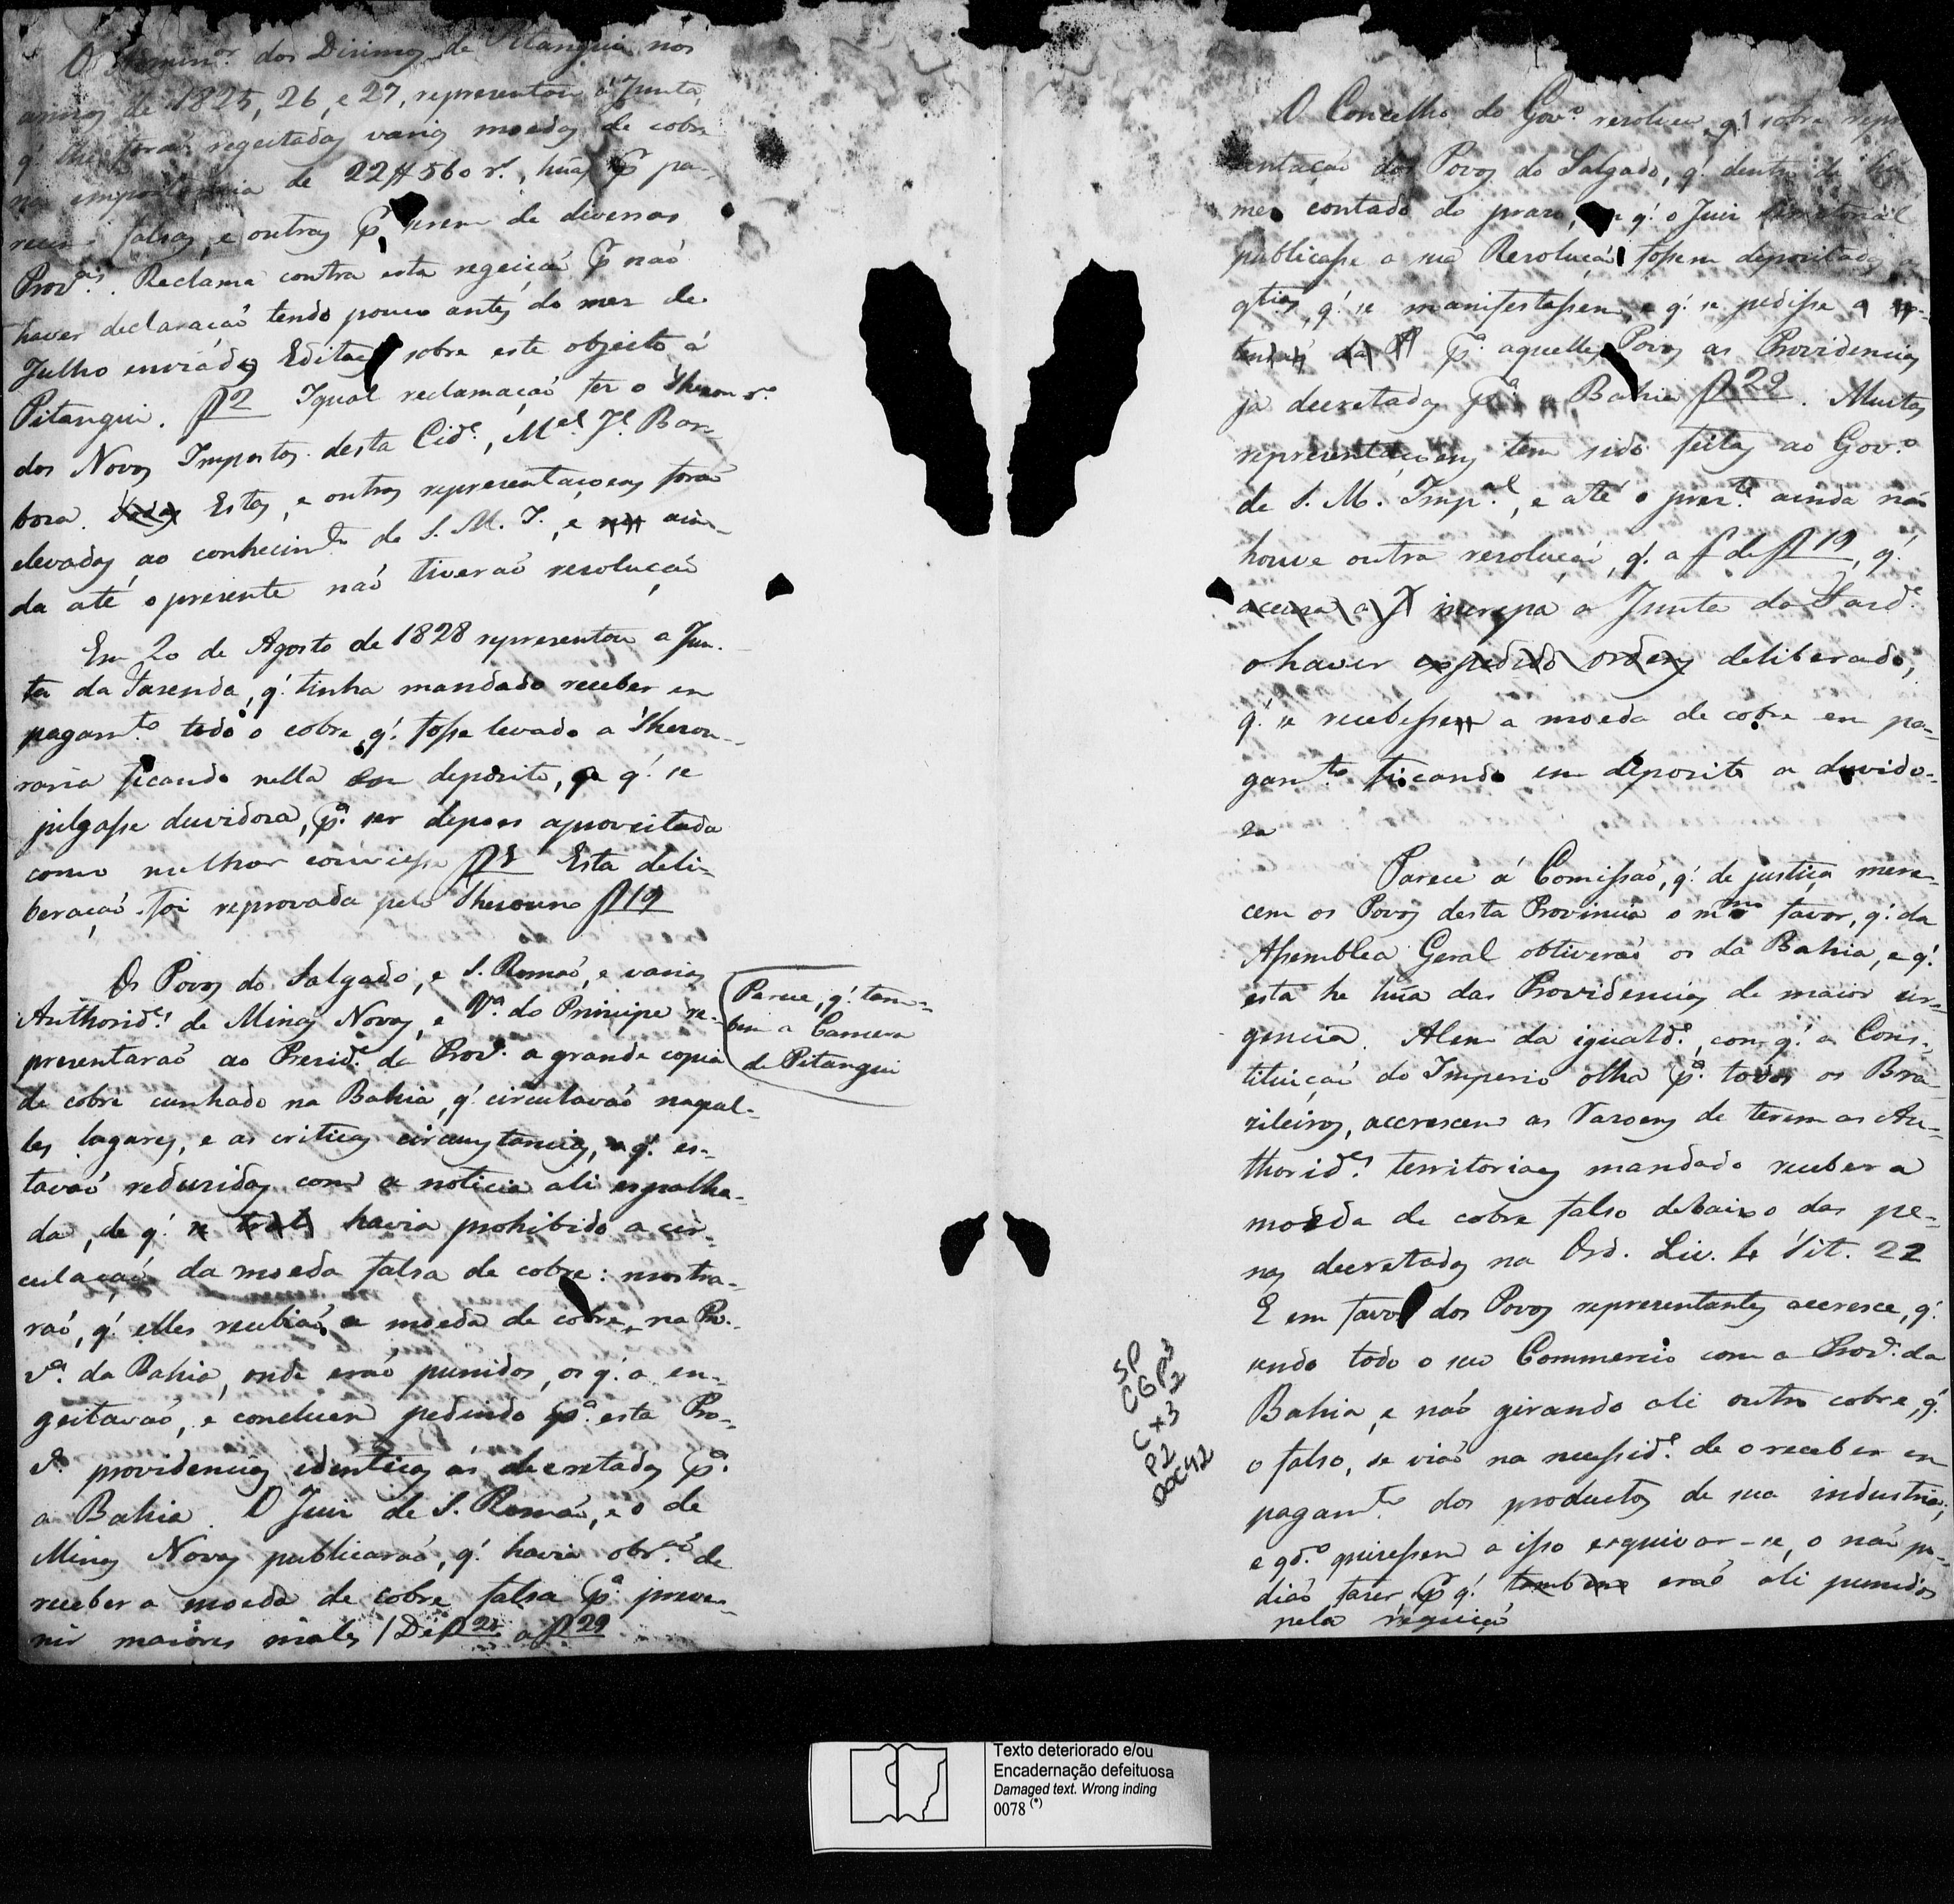 O Admin.or dos Dizimos de Pitangui nos
annos de 1825, 26, e 27, representou á Junta,
q.' lhe foraõ regeitadas varias moedas de cobre
na importancia de 22$560 r.s, huãs p pa-
recerem falsas, e outras p serem de diversas
Prov.as. Reclama contra esta regeiçaõ p naõ
haver declaraçaõ tendo pouco antes do mez de
Julho enviado Editaes sobre este objecto á
Pitangui. f 2 Igual reclamaçaõ fez o Thezour.o
dos Novos Impostos desta Cid.e, M.el J.e Bar-
boza. Estas, e outras representaçoens foraõ
elevadas ao conhecim.to de S. M. I., e ain-
da até o presente naõ tiveraõ resoluçaõ
Em 20 de Agosto de 1828 representou a Jun-
ta da Fazenda, q.' tinha mandado receber em
pagam.to todo o cobre, q.' fosse levado a Thezou-
raria ficando nella em deposito, o q.' se
julgasse duvidoza, p.a ser depois aproveitada
como melhor conviesse f Esta deli-
beraçaõ foi reprovada pelo Thezouro f 19
Os Povos do Salgado, e S. Romaõ, e varias
Authorid.es de Minas Novas, e V.a do Principe re-
prezentaraõ ao Presid.e da Prov.a a grande copia
de cobre cunhado na Bahia, q.' circulavaõ naquel-
les lugares, e as criticas circunstancias, a q.' es-
tavaõ reduzidas com a noticia ali espalha-
da, de q.' se havia prohibido a cir-
culaçaõ da moeda falsa de cobre: mostra-
raõ, q.' elles recebiaõ a moeda de cobre, na Pro-
v.a da Bahia, onde eraõ punidos, os q.' a en-
geitavaõ, e concluem pedindo p.a esta Pro-
v.a providencias identicas ás decretadas p.a
a Bahia. O Juiz de S. Romaõ, e o de
Minas Novas publicaraõ, q.' havia obr.aõ de
receber a moeda de cobre falsa p.a preve-
nir maiores males / De f 24 a f 29
Parece, q.' tam-
bem a Camera
de Pitangui
O Concelho do Gov.o resolveu, q.' sobre repre
zentaçaõ dos Povos do Salgado, q.' dentro de hu
mes contado do prazo, em q.' o Juiz territorial
publicasse a sua Resoluçaõ fossem depositadas as
q.tias, q.' se manifestassem, e q.' se pedisse
p.a aquelles Povos as Providencias
ja decretadas p.a a Bahia f 22. Muitas
representaçoens tem sido feitas ao Gov.o
de S. M. Imp.al, e até o prez.te ainda naõ
houve outra resoluçaõ, q.' a f de f 19, q.'
accuza a J increpa a Junta da Fazd.a
o haver expedido ordens deliberado,
q.' se recebessem a moeda de cobre em pa-
gam.to ficando em deposito a duvido-
za
Parece á Comissaõ, q.' de justiça mere-
cem os Povos desta Provincia o m.mo favor, q.' da
Assemblea Geral obtiveraõ os da Bahia, e q.'
esta he huã das Providencias de maior ur-
gencia. Alem da iguald.e, com q.' a Cons-
tituiçaõ do Imperio olha p.a todos os Bra-
zileiros, accrescem as razoens de terem as Au-
thorid.es territoriaes mandado receber a
moeda de cobre falso debaixo das pe-
nas decretadas na Ord. Liv. 4 Tit. 22
E em favor dos Povos representantes accresce, q.'
sendo todo o seu Commercio com a Prov.a da
Bahia, e naõ girando ali outro cobre, q.'
o falso, se viaõ na necessid.e de o receber em
pagam.to dos productos de sua industria;
e qd.o quizessem a isso esquivar-se, o naõ po-
diaõ fazer, p q.' tambem eraõ ali punidos
pela regeiçaõ
SP
CGP3
2
Cx3
P2
DOC42
Texto deteriorado e/ou
Encadernação defeituosa
Damaged text. Wrong inding
0078 (*)